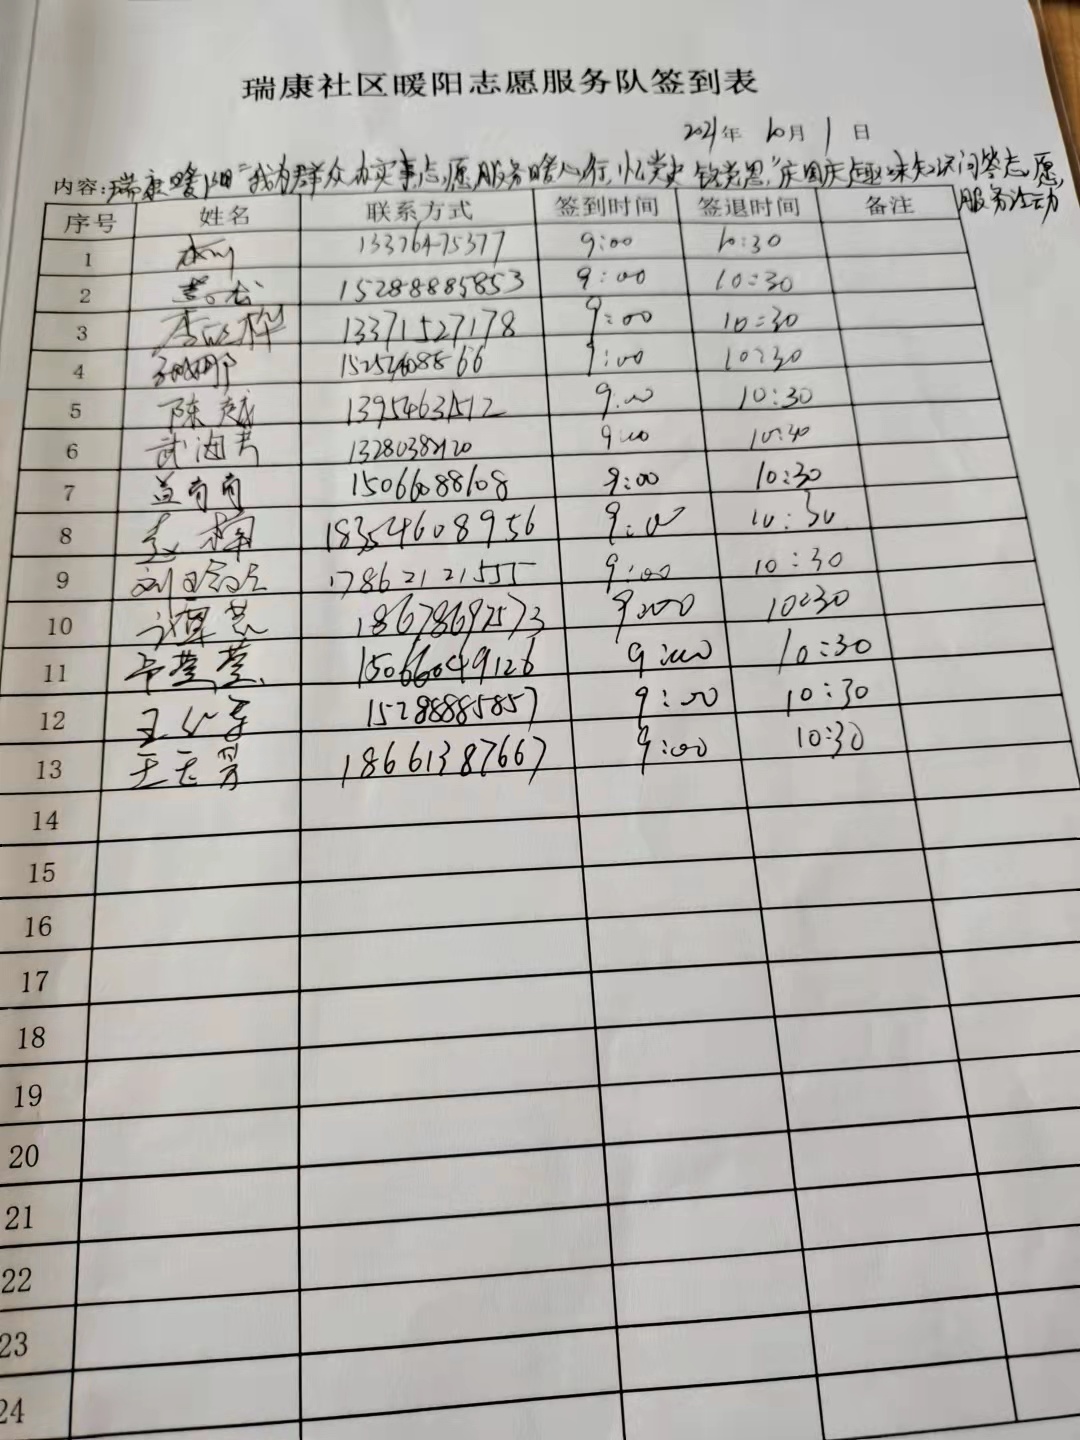 瑞康社区暖阳志愿服务队签到表
2021年 10月 1日
内容:瑞康暖阳"我为群众办实事志愿服务暖心行,忆党史 铭党恩"庆国庆趣味知识问答志愿
服务活动
序号 姓名 联系方式 签到时间 签退时间 备注
1 13376475377 9:00 10:30
2 15288885853 9:00 10:30
3 13371527178 9:00 10:30
4 9:00 10:30
5 陈越 9:00 10:30
6 武海书 9:00 10:30
7 15066088108 9:00 10:30
8 赵楠 18354608956 9:00 10:30
9 17862121555 9:00 10:30
10 18678692573 9:00 10:30
11 15066049126 9:00 10:30
12 15288885857 9:00 10:30
13 18661387667 9:00 10:30
14
15
16
17
18
19
20
21
22
23
24